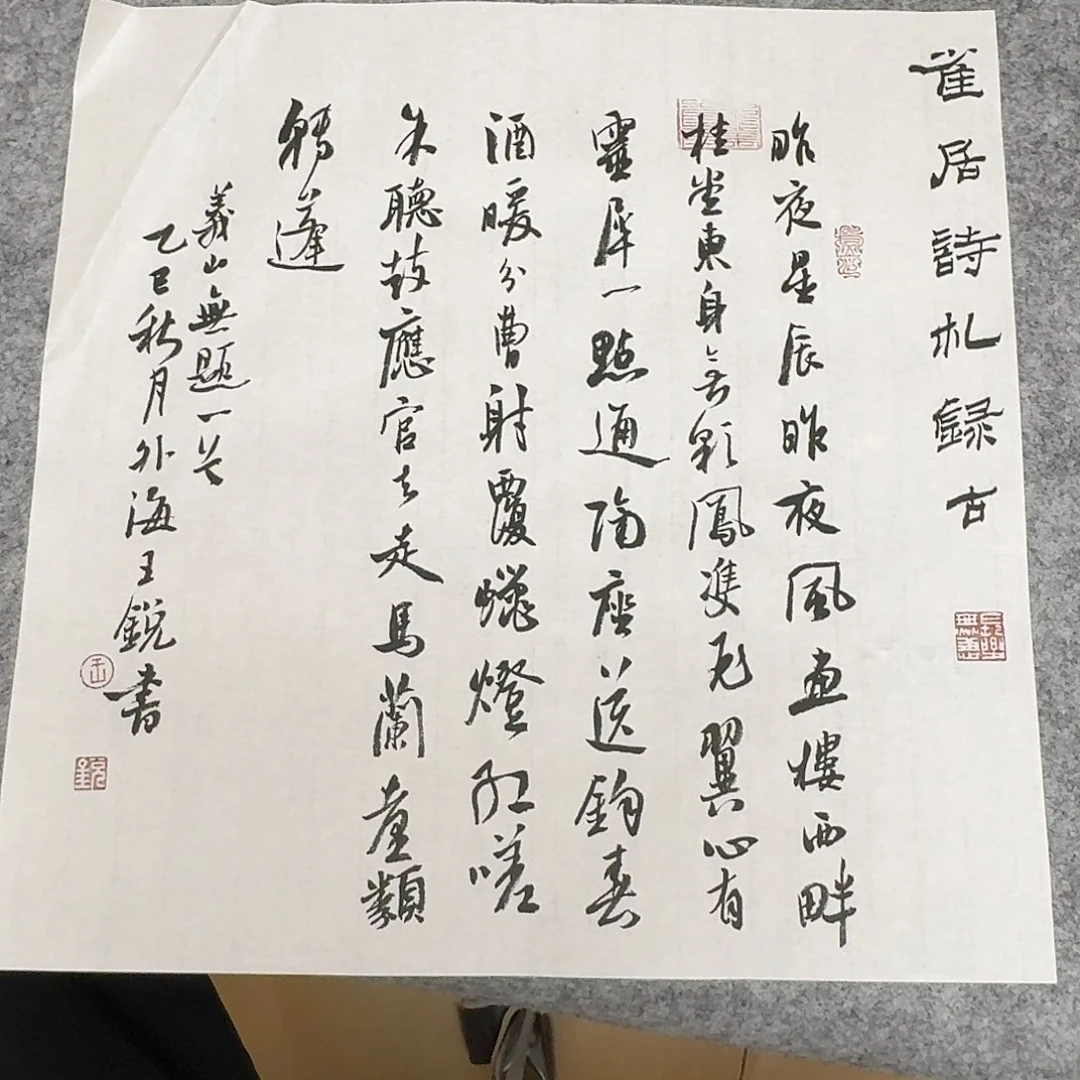 雀居詩札録古
昨夜星辰昨夜風畫樓西畔
桂堂東身無彩鳳雙飛翼心有
靈犀一點通隔座送鉤春
酒暖分曹射覆蠟燈紅嗟
余聽鼓應官去走馬蘭臺類
轉蓬
義山無題一首
乙巳秋月外海王鋭書
王